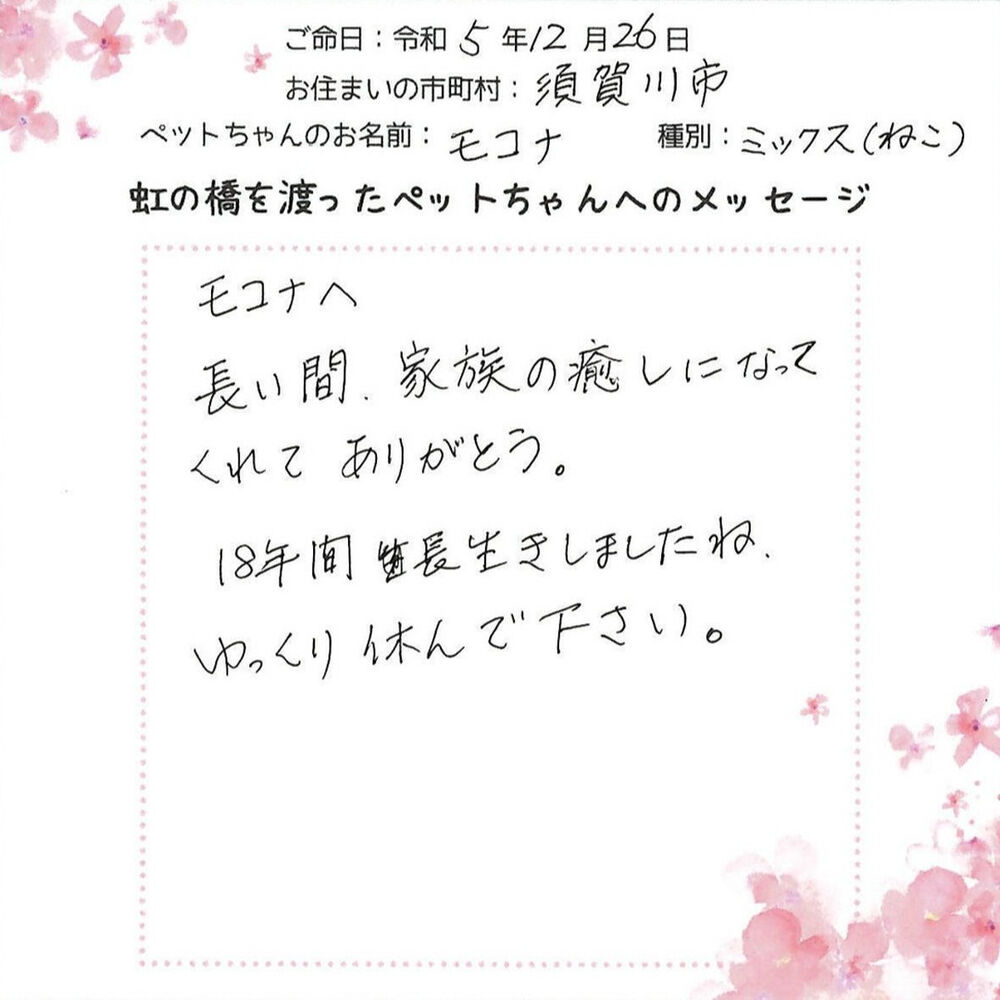 ご命日：令和 5 年 12 月 26 日
お住まいの市町村：須賀川市
ペットちゃんのお名前：モコナ 種別：ミックス(ねこ)
虹の橋を渡ったペットちゃんへのメッセージ
モコナへ
長い間、家族の癒しになって
くれて ありがとう。
18年間 長生きしましたね、
ゆっくり休んで下さい。